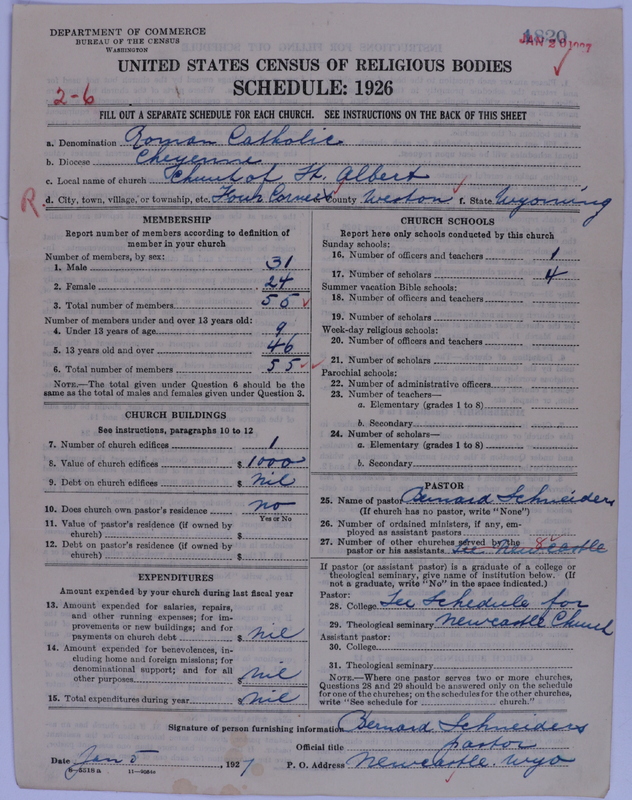 DEPARTMENT OF COMMERCE
BUREAU OF THE CENSUS
WASHINGTON
JAN 20 1927
UNITED STATES CENSUS OF RELIGIOUS BODIES
SCHEDULE: 1926
2-6
FILL OUT A SEPARATE SCHEDULE FOR EACH CHURCH. SEE INSTRUCTIONS ON THE BACK OF THIS SHEET
a. Denomination Roman Catholic
b. Diocese Cheyenne
c. Local name of church Church of St. Albert
R d. City, town, village, or township, etc. Four Corners County Weston f. State Wyoming
MEMBERSHIP
Report number of members according to definition of
member in your church
Number of members, by sex:
1. Male 31
2. Female 24
3. Total number of members 55
Number of members under and over 13 years old:
4. Under 13 years of age 9
5. 13 years old and over 46
6. Total number of members 55
NOTE.—The total given under Question 6 should be the
same as the total of males and females given under Question 3.
CHURCH BUILDINGS
See instructions, paragraphs 10 to 12
7. Number of church edifices 1
8. Value of church edifices $ 1000
9. Debt on church edifices $ nil
10. Does church own pastor's residence no
Yes or No
11. Value of pastor's residence (if owned by
church) $
12. Debt on pastor's residence (if owned by
church) $
EXPENDITURES
Amount expended by your church during last fiscal year
13. Amount expended for salaries, repairs,
and other running expenses; for im-
provements or new buildings; and for
payments on church debt $ nil
14. Amount expended for benevolences, in-
cluding home and foreign missions; for
denominational support; and for all
other purposes $ nil
15. Total expenditures during year $ nil
CHURCH SCHOOLS
Report here only schools conducted by this church
Sunday schools:
16. Number of officers and teachers 1
17. Number of scholars 4
Summer vacation Bible schools:
18. Number of officers and teachers
19. Number of scholars
Week-day religious schools:
20. Number of officers and teachers
21. Number of scholars
Parochial schools:
22. Number of administrative officers
23. Number of teachers—
a. Elementary (grades 1 to 8)
b. Secondary
24. Number of scholars—
a. Elementary (grades 1 to 8)
b. Secondary
PASTOR
25. Name of pastor Bernard Schneiders
(If church has no pastor, write "None")
26. Number of ordained ministers, if any, em-
ployed as assistant pastors
27. Number of other churches served by the
pastor or his assistants See Newcastle
If pastor (or assistant pastor) is a graduate of a college or
theological seminary, give name of institution below. (If
not a graduate, write "No" in the space indicated.)
Pastor:
28. College See Schedule for
29. Theological seminary Newcastle Church
Assistant pastor:
30. College
31. Theological seminary
NOTE.—Where one pastor serves two or more churches,
Questions 28 and 29 should be answered only on the schedule
for one of the churches; on the schedules for the other churches,
write "See schedule for church."
Signature of person furnishing information Bernard Schneiders
Official title pastor
Date Jan 5, 1927 P. O. Address Newcastle. Wyo
8-5518a 11-9984a